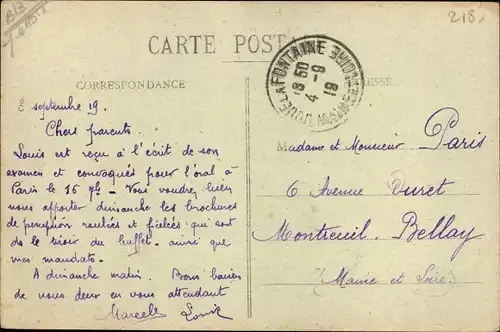 B13
218
CARTE POSTALE
CORRESPONDANCE
DOUÉ LA FONTAINE
8 50
4 - 9
19
3 septembre 19.
Chers parents
Louis est reçu à l'écrit de son
examen et convoqués pour l'oral à
Paris le 16 7b - Vous voudrez bien
nous apporter dimanche les brochures
de perception roulées et ficelées qui sont
ds le tiroir du buffet - ainsi que
mes mandats.
A dimanche matin. Bons baisers
de nous deux en vous attendant
Marcelle Louis
Madame et Monsieur Paris
6 Avenue Duret
Montreuil. Bellay
(Maine et Loire)